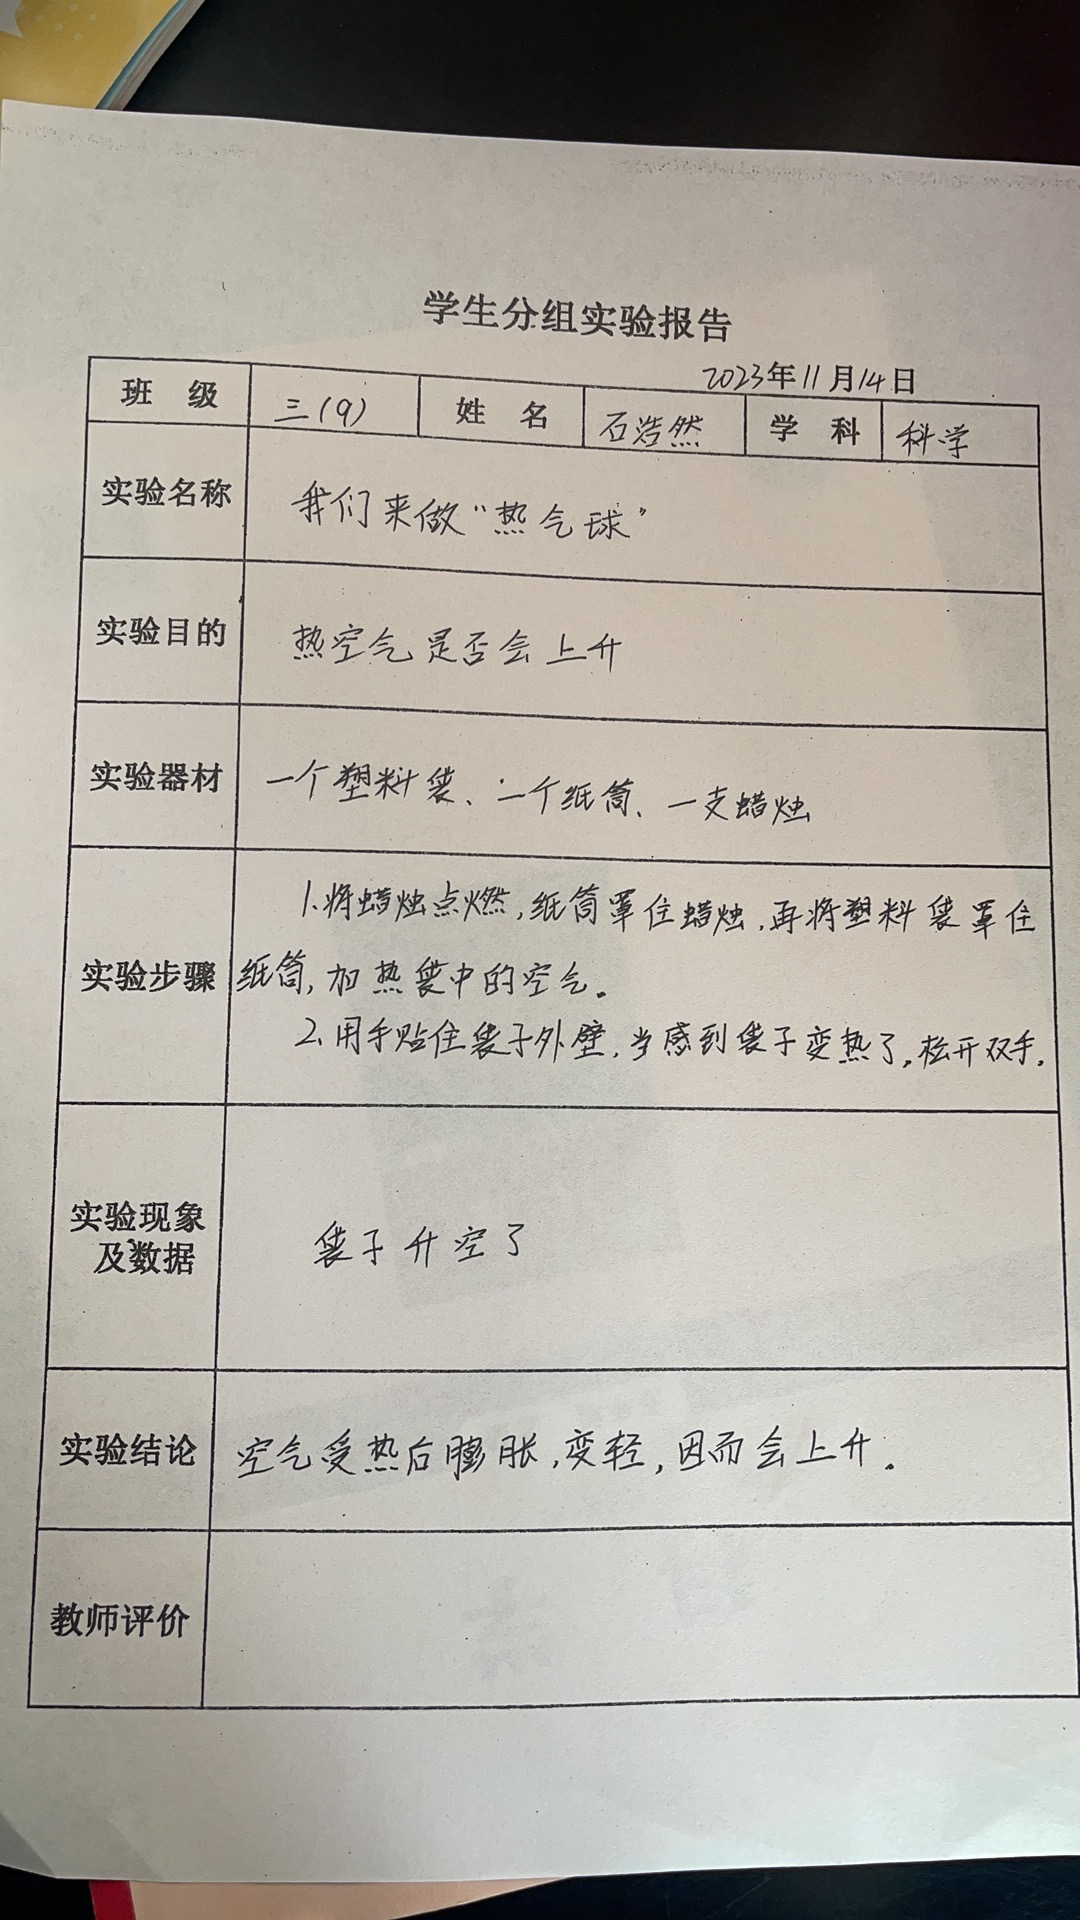 学生分组实验报告
2023年11月14日
班 级 三(9) 姓 名 石浩然 学 科 科学
实验名称 我们来做“热气球”
实验目的 热空气是否会上升
实验器材 一个塑料袋、一个纸筒、一支蜡烛
1.将蜡烛点燃,纸筒罩住蜡烛,再将塑料袋罩住
实验步骤 纸筒,加热袋中的空气。
2.用手贴住袋子外壁,当感到袋子变热了,松开双手.
实验现象
及数据
袋子升空了
实验结论 空气受热后膨胀,变轻,因而会上升.
教师评价